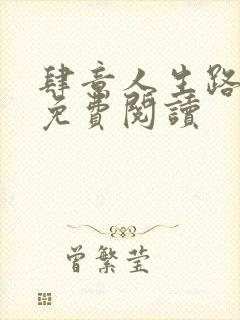 肆意人生路
免費閱讀
曾繁莹